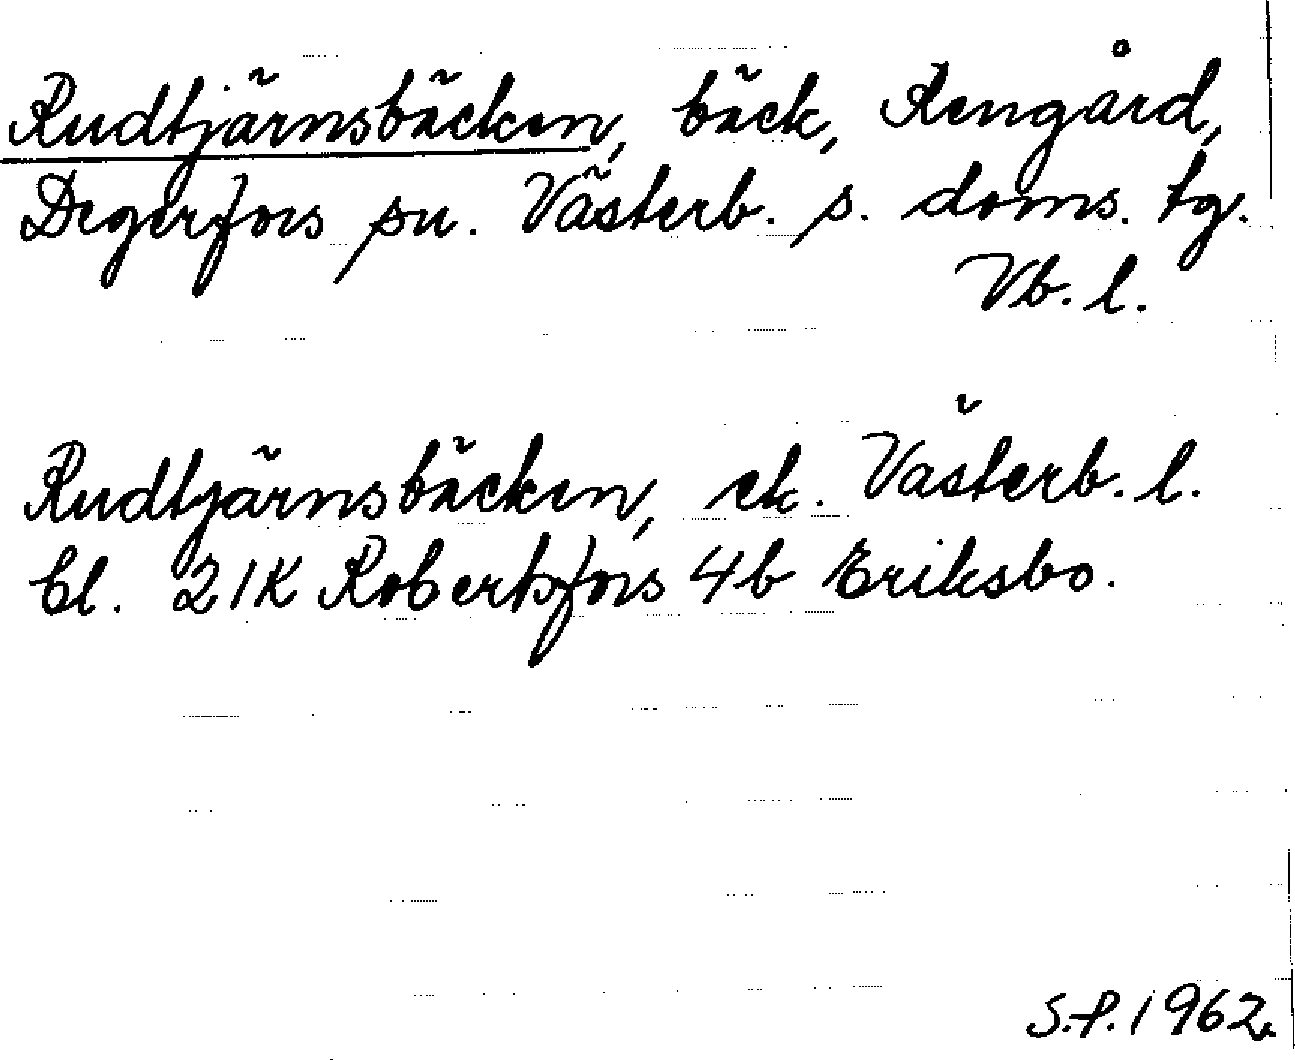 Rudtjärnsbäcken, bäck, Rengård,
Degerfors sn. Västerb. s. doms. tg.
Vb. l.
Rudtjärnsbäcken, ek. Västerb. l.
bl. 21K Robertsfors 4b Eriksbo.
S.P. 1962.